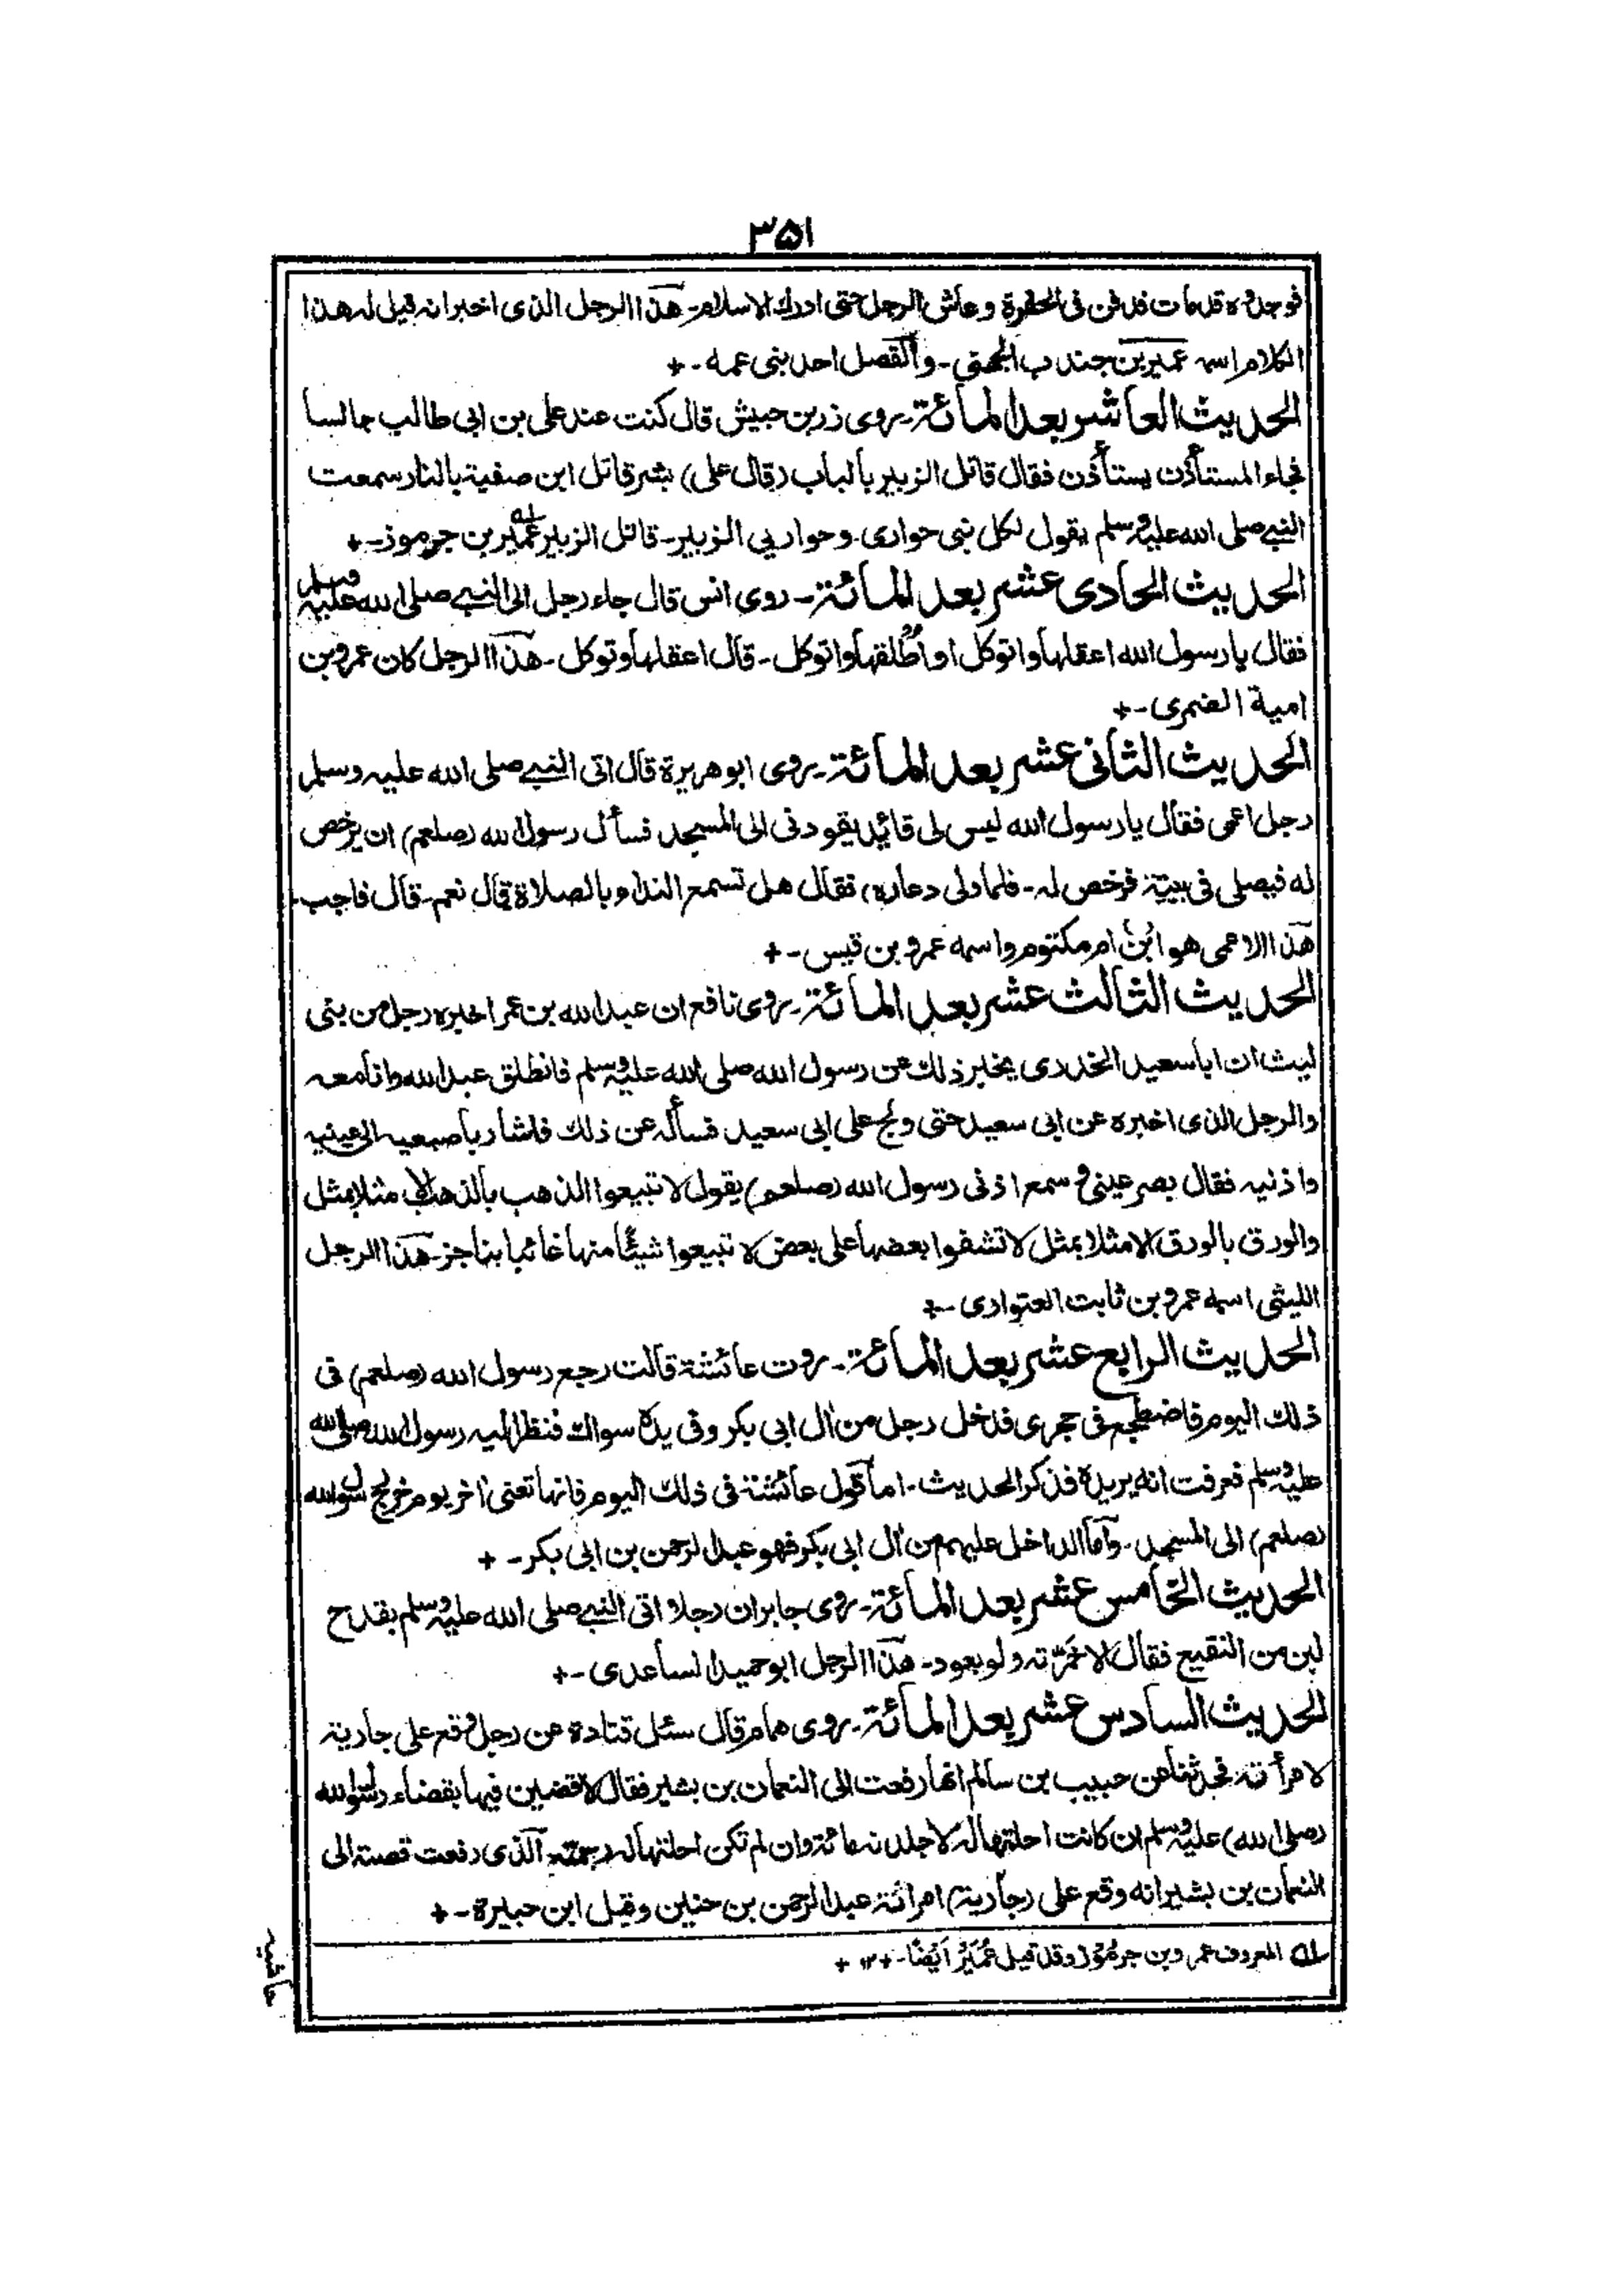 ٣٥١
فوجدوه قد مات فدفن فی الحفرة وعاش الرجل حتی ادرك الاسلام۔ هذا الرجل الذی اخبر انه قیل له هذا
الکلام اسمه عمیر بن جندب الجهنی۔ والقصل احد بنی عمه۔+
الحدیث العاشر بعد المائة۔ روی زر بن حبیش قال کنت عند علی بن ابی طالب جالسا
فجاء المستأذن یستأذن فقال قاتل الزبیر بالباب (قال علی) بشر قاتل ابن صفیة بالنار سمعت
النبی صلی الله علیه وسلم یقول لکل نبی حواری۔ وحواریی الزبیر۔ قاتل الزبیر عمیر له بن جرموذ۔+
الحدیث الحادی عشر بعد المائة۔ روی انس قال جاء رجل الی النبی صلی الله علیه وسلم
فقال یا رسول الله اعقلها واتوکل او اُطلقها واتوکل۔ قال اعقلها وتوکل۔ هذا الرجل کان عمرو بن
امیة الضمری۔+
الحدیث الثانی عشر بعد المائة۔ روی ابوهریرة قال اتی النبی صلی الله علیه وسلم
رجل اعمی فقال یا رسول الله لیس لی قائد یقودنی الی المسجد فسأل رسول الله (صلعم) ان یرخص
له فیصلی فی بیته فرخص له۔ فلما ولی دعاه، فقال هل تسمع النداء بالصلاة قال نعم۔ قال فاجب۔
هذا الاعمی هو ابن ام مکتوم واسمه عمرو بن قیس۔+
الحدیث الثالث عشر بعد المائة۔ روی نافع ان عبد الله بن عمر اخبره رجل من بنی
لیث ان ابا سعید الخدری یخبر ذلك عن رسول الله صلی الله علیه وسلم فانطلق عبد الله وانا معه
والرجل الذی اخبره عن ابی سعید حتی ولج علی ابی سعید فسأله عن ذلك فاشار باصبعیه الی عینیه
واذنیه فقال بصر عینی وسمع اذنی رسول الله (صلعم) یقول لا تبیعوا الذهب بالذهب الا مثلا بمثل
والورق بالورق الا مثلا بمثل لا تشفوا بعضها علی بعض لا تبیعوا شیئا منها غائبا بناجز۔ هذا الرجل
اللیثی اسمه عمرو بن ثابت العتواری۔+
الحدیث الرابع عشر بعد المائة۔ روت عائشة قالت رجع رسول الله (صلعم) فی
ذلك الیوم فاضطجع فی حجری فدخل رجل من اٰل ابی بکر وفی یده سواك فنظر الیه رسول الله صلی الله
علیه وسلم فعرفت انه یریده فذکر الحدیث۔ اما قول عائشة فی ذلك الیوم فانها تعنی اٰخر یوم خرج رسول الله
(صلعم) الی المسجد۔ واما الداخل علیهم من اٰل ابی بکر فهو عبد الرحمن بن ابی بکر۔+
الحدیث الخامس عشر بعد المائة۔ روی جابر ان رجلا اتی النبی صلی الله علیه وسلم بقدح
لبن من النقیع فقال الا خمّرته ولو بعود۔ هذا الرجل ابو حمید الساعدی۔+
الحدیث السادس عشر بعد المائة۔ روی همام قال سئل قتادة عن رجل وقع علی جاریة
لامرأته۔ فحدثنا عن حبیب بن سالم انها رفعت الی النعمان بن بشیر فقال لاقضین فیها بقضاء رسول الله
(صلی الله) علیه وسلم ان کانت احلتها له لاجلدنه مائة وان لم تکن احلتها له رجمته۔ الذی رفعت قصته الی
النعمان بن بشیر انه وقع علی (جاریة) امرأته عبد الرحمن بن حنین وقیل ابن حبیرة۔+
له المعروف عمرو بن جرموز وقد قیل عُمَیْرُ اَیْضًا۔+١٢+
حاشیه